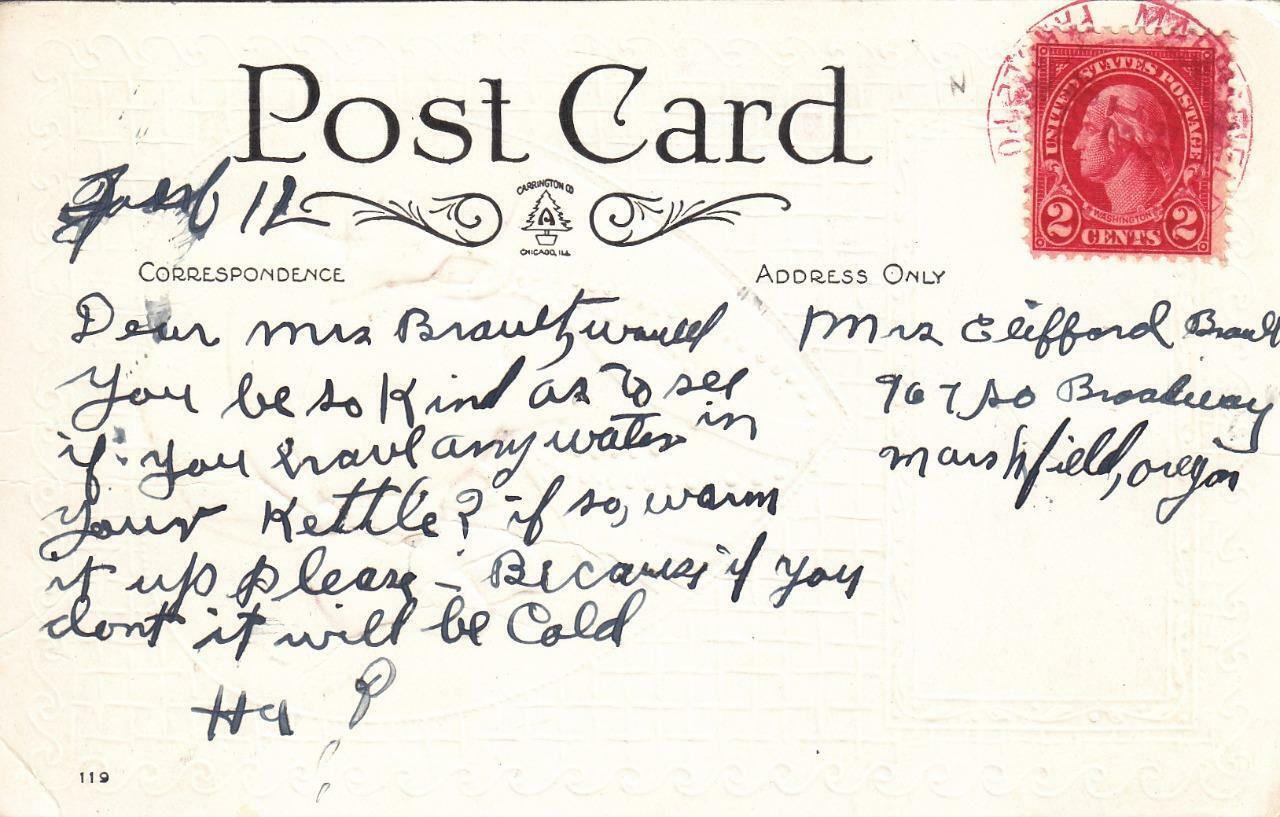 Post Card
12
CARRINGTON CO
A
CHICAGO, ILL
CORRESPONDENCE
ADDRESS ONLY
UNITED STATES POSTAGE
WASHINGTON
2 CENTS 2
Dear Mrs Brault, would
you be so kind as to see
if you have any water in
your Kettle? if so, warm
it up please - Because if you
dont it will be Cold
Ha
Mrs Clifford Brault
967 So Broadway
Marshfield, oregon
119